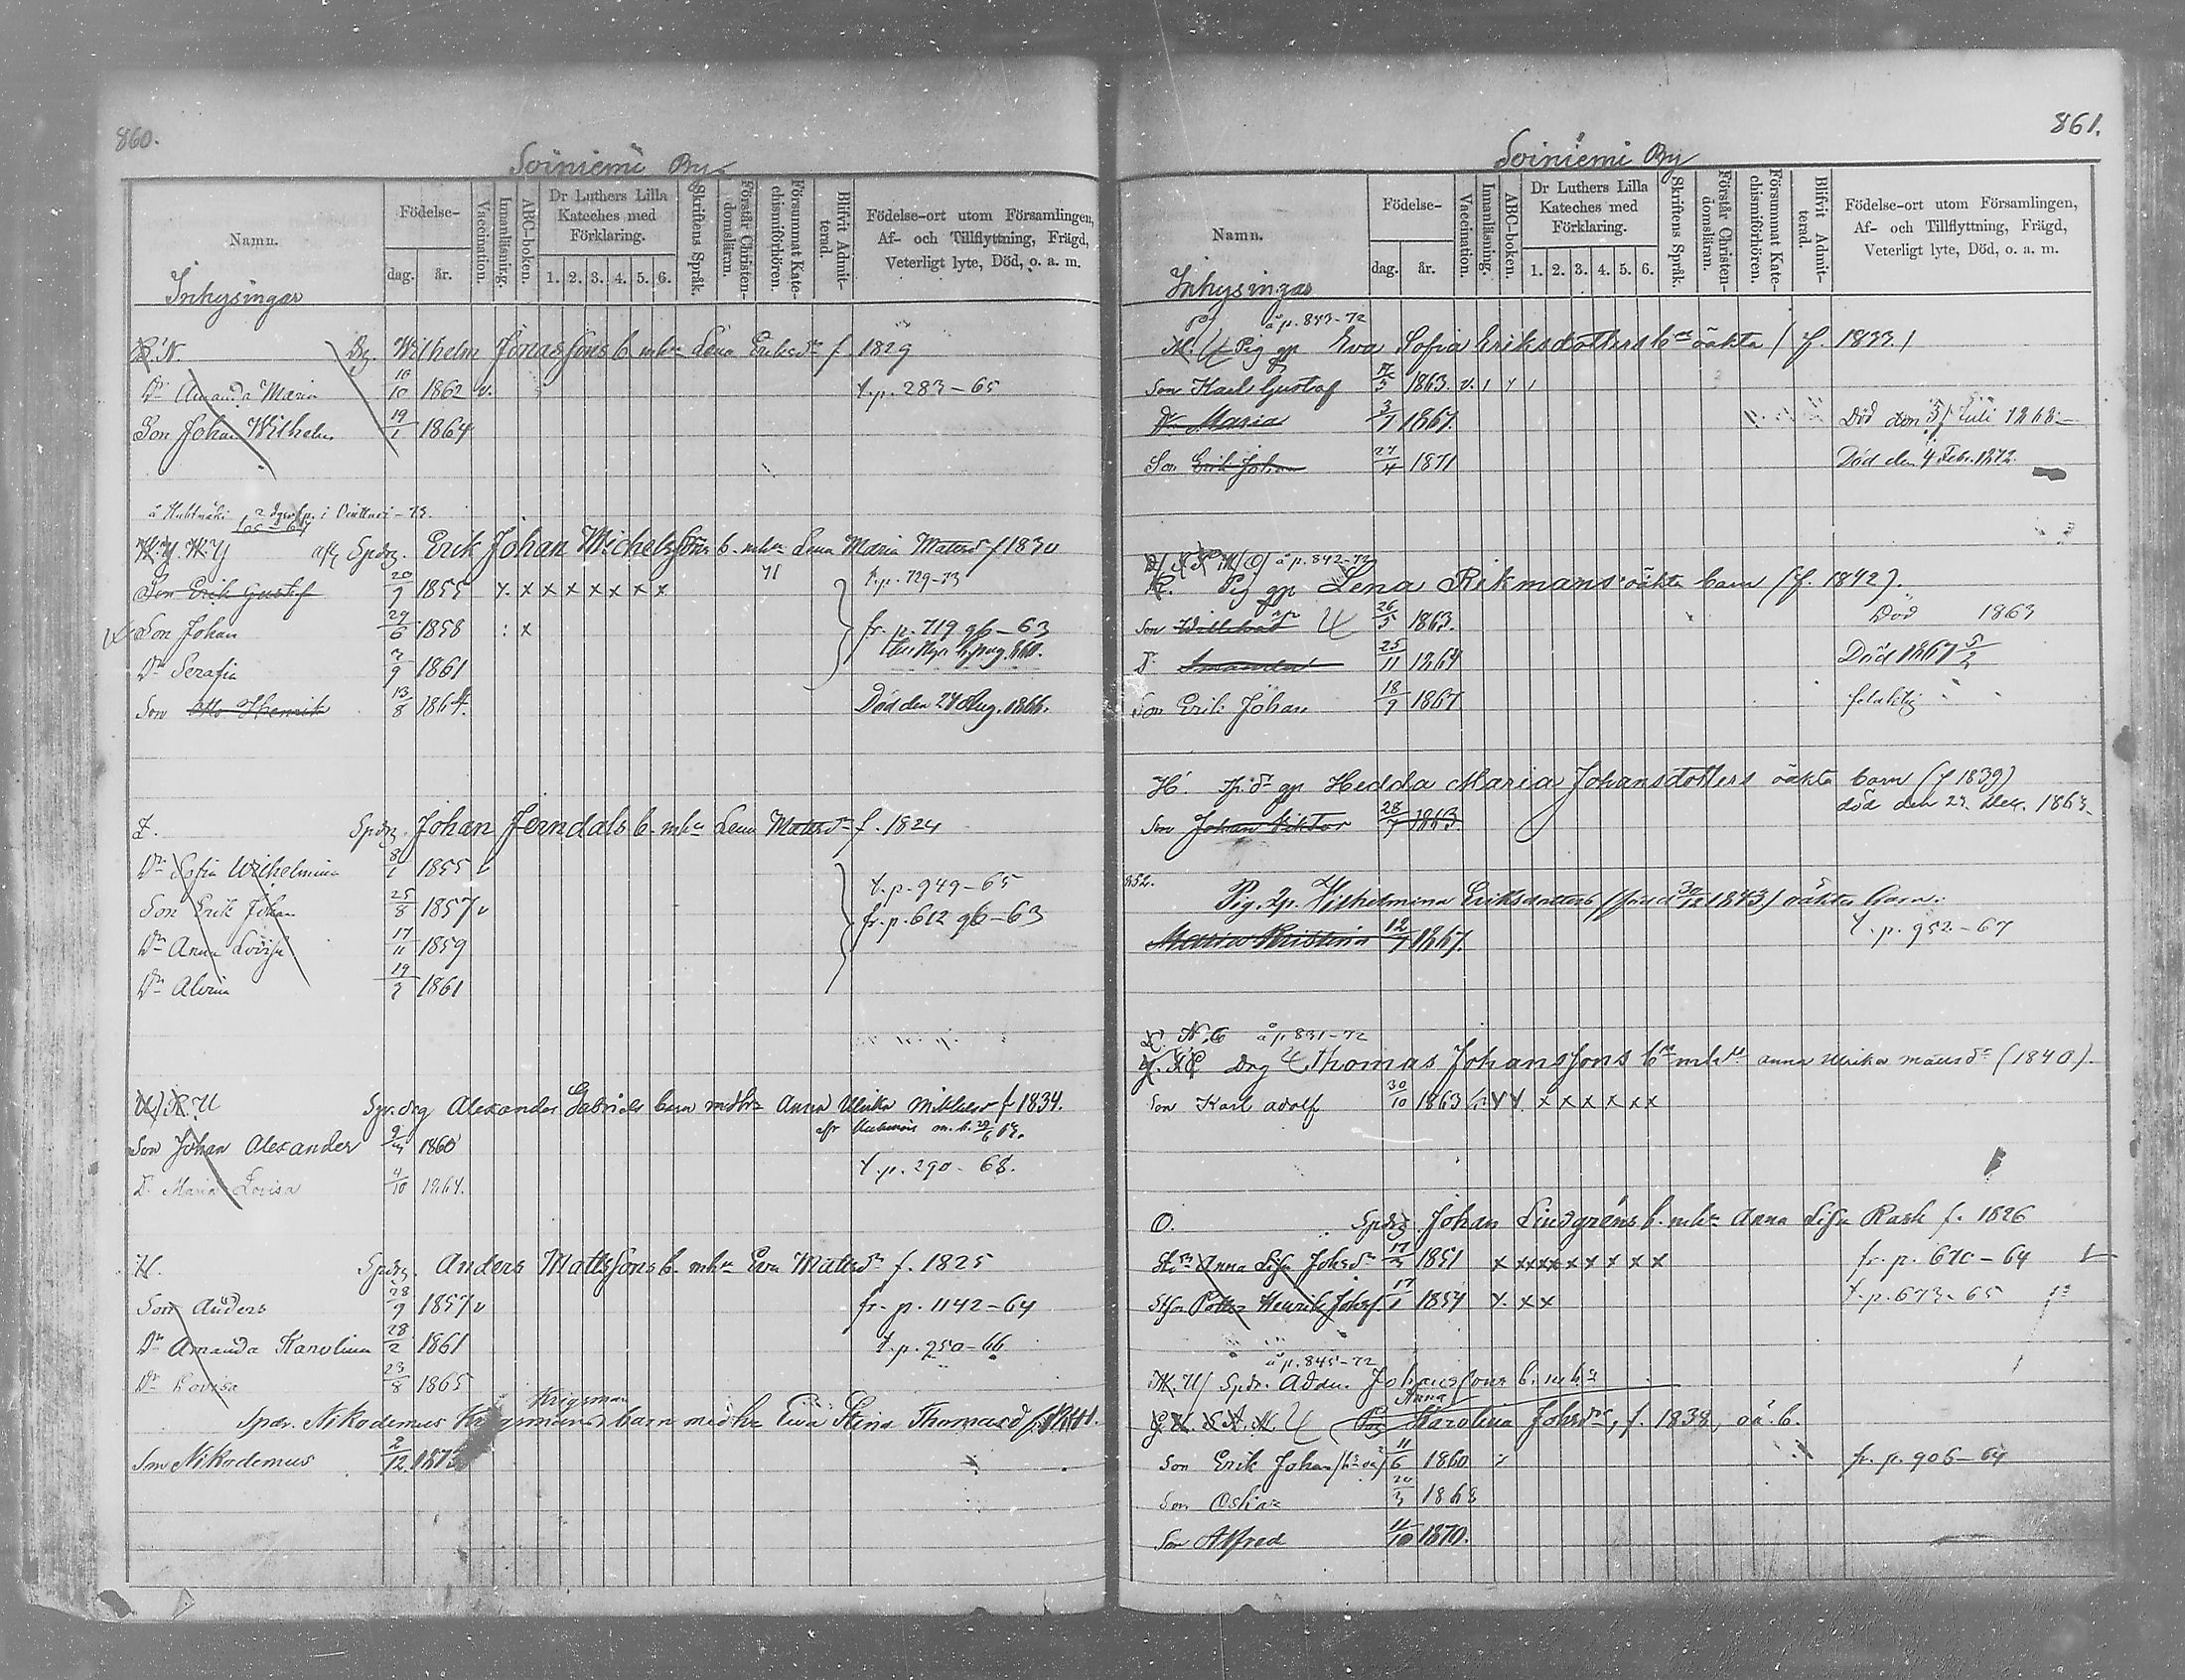 860.
Soiniemi By
Namn.
Födelse-
dag.
år.
Vaccination.
Innanläsning.
ABC-boken.
Dr Luthers Lilla Kateches med Förklaring.
1. 2. 3. 4. 5. 6.
Skriftens Språk.
Förstår Christendomsläran.
Försummat Katechismiförhören.
Blifvit Admitterad.
Födelse-ort utom Församlingen, Af- och Tillflyttning, Frägd, Veterligt lyte, Död, o. a. m.
Inhysingar
N. Wilhelm Jonassons b. mhu Lena Eriksdr f 1829
Dr Amanda Maria 10/10 1862 v. t.p. 283-65
Son Johan Wilhelm 19/1 1864
Spdrg. Erik Johan Michelssons b. mhu Lena Maria Matsdr f 1830
Son Erik Gustaf 20/9 1855 x x x x x x x t.p. 729-73
Son Johan 29/6 1858 x fr. p. 719 gb-63
Dr Serafia 3/9 1861
Son Otto Henrik 13/8 1864. Död den 24 Aug. 1866.
Spdrg. Johan Jerndals b. mhu Lena Matsdr f. 1824
Dr Sofia Wilhelmina 8/1 1855 v
t.p. 949-65
Son Erik Johan 25/8 1857 v fr. p. 612 gb-63
Dr Anna Lovisa 17/11 1859
Dr Alvina 19/3 1861
Alexander Gabriels barn medhu Anna Ulrika Mickelsdr f 1834.
Son Johan Alexander 1860
t.p. 290-68.
D. Maria Lovisa 4/10 1864.
H. Spdrg. Anders Mattssons b. mhu Eva Mattsdr f. 1825
Son Anders 28/9 1857 v fr. p. 1142-64
Dr Amanda Karolina 28/2 1861 t.p. 250-66
Dr Lovisa 23/8 1865
Krigsman
Spdr. Nikodemus barn med hu Eva Stina Thomasd
Son Nikodemus 2/12 1873
861.
Soiniemi By
Namn.
Födelse-
dag.
år.
Vaccination.
Innanläsning.
ABC-boken.
Dr Luthers Lilla Kateches med Förklaring.
1. 2. 3. 4. 5. 6.
Skriftens Språk.
Förstår Christendomsläran.
Försummat Katechismiförhören.
Blifvit Admitterad.
Födelse-ort utom Församlingen, Af- och Tillflyttning, Frägd, Veterligt lyte, Död, o. a. m.
Inhysingar
å p. 843-72
Pig gp Eva Sofia Eriksdotters bn oäkta / f. 1833 /
Son Karl Gustaf 1863. v.
Dr Maria 3/1 1867. Död den Juli 1868
Son Erik Johan 27/4 1871 Död den 4 Feb. 1872
å p. 842-72
Pig gp Lena Rikmans oäkta barn (f. 1842).
Son 26/5 1863. Död 1863
D. Amanda 25/11 1864 Död 1867 5/2
Son Erik Johan 18/9 1867
H. gp Hedda Maria Johansdotters oäkta barn (f 1839)
Son Johan Viktor 28/7 1863. död den 1863
852.
Pig. gp. Wilhelmina Eriksdotters 1843) oäkta barn.
Maria Kristina 12/7 1867. t. p. 952-67
å p. 831-72
Drg Thomas Johanssons bn mhu Anna Ulrika Mattsdr (1840).
Son Karl Adolf 30/10 1863 x x x x x x
O. Spdrg Johan Lindgréns b. mhu Anna Lisa Rask f. 1826
Anna Lisa Johsdr 17/3 1851 x x x x x x x x x fr. p. 670-64
Henrik Johsf 17/1 1854 x x t. p. 673-65
å p. 845-72
Spdr. Johanssons b. mhu
Anna
Karolina Johsdrs, f. 1838, oä. b.
Son Erik Johan 11/6 1860 fr. p. 906-64
Son Oskar 20/3 1868
Son Alfred 4/10 1870.